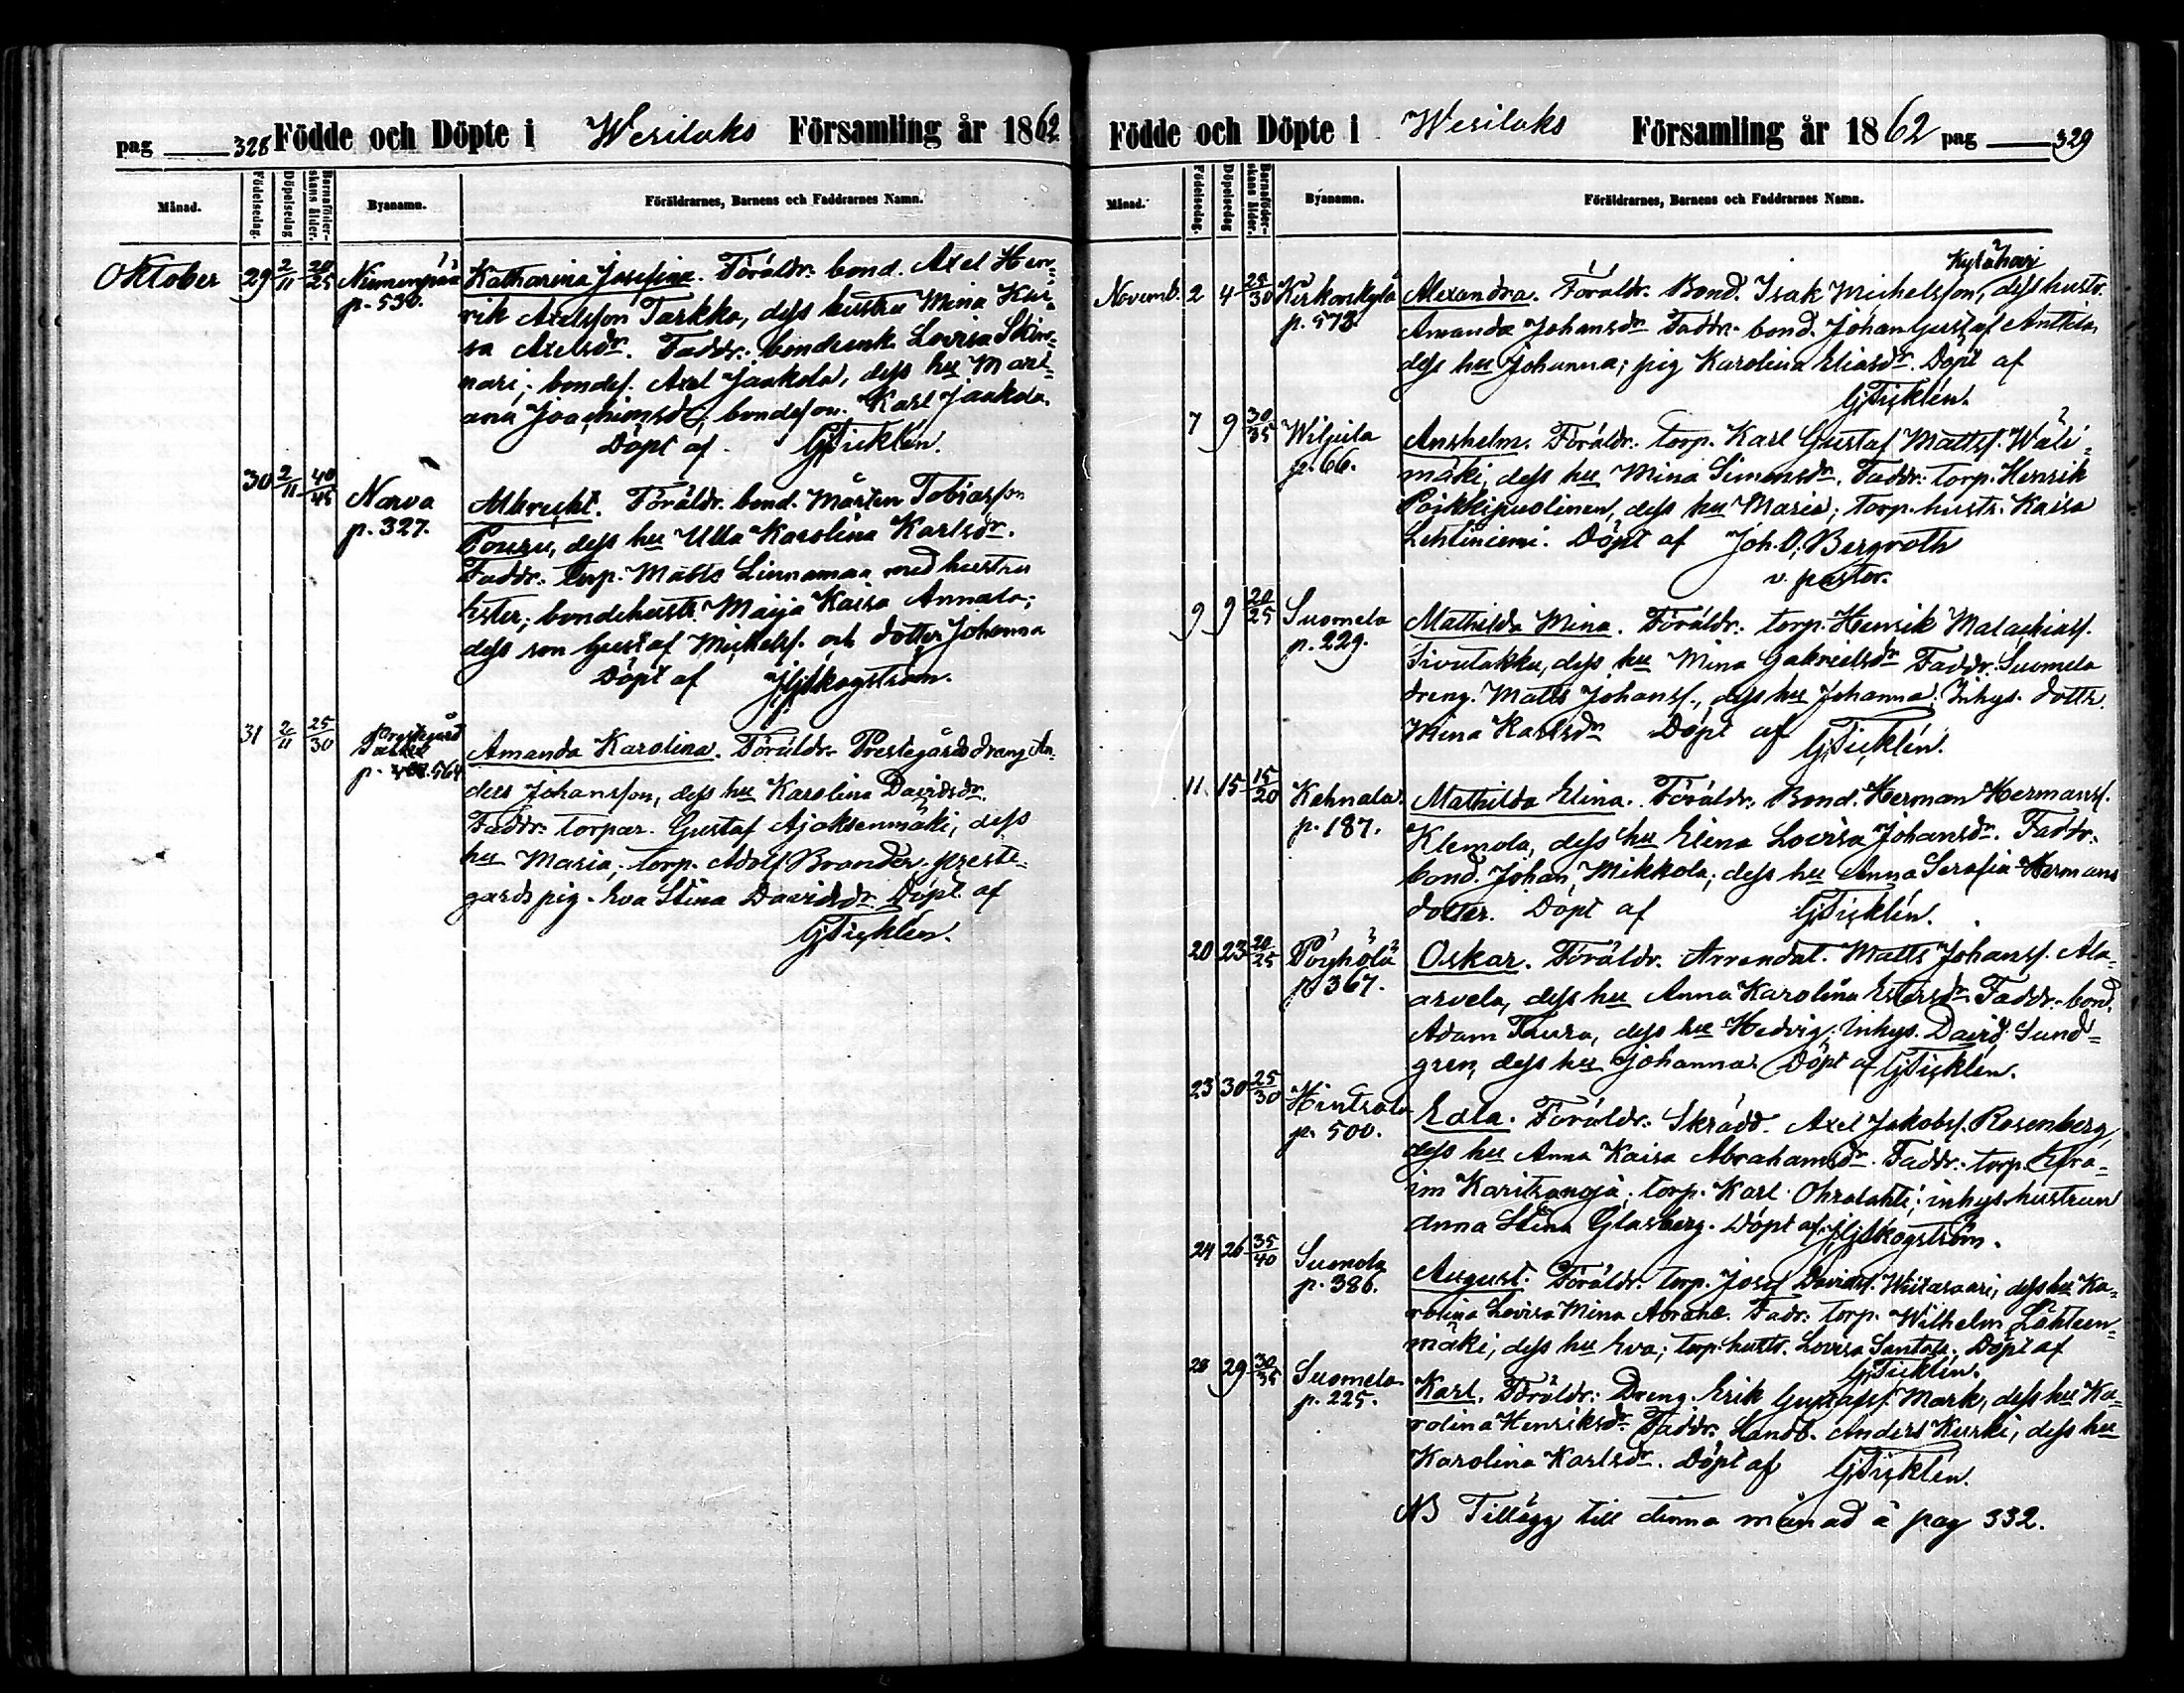 pag 328 Födde och Döpte i Wesilaks Församling år 1862
Månad. Födelsedag. Döpelsedag Barnaföderskans ålder. Byanamn. Föräldrarnes, Barnens och Faddrarnes Namn.
Oktober 29 2/11 20/25 Niemenpää Katharina Josefina. Föräldr: bond. Axel Hen-
p. 530. rik Axelsson Tarkka, dess hustru Mina Kur-
va Axelsdr. Faddr: bondeenk. Lovisa Skin-
nari; bondes. Axel Jaakola, dess hu Mari-
ana Joachimsdr; bondeson. Karl Jaakola.
Döpt af G Ticklén.
30 2/11 40/45 Narva Albrecht. Föräldr. bond. Mårten Tobiasson
p. 327. Pouru, dess hu Ulla Karolina Karlsdr.
Faddr. torp. Matts Linnamaa med hustru
Ester; bondehustr. Maija Kaisa Annala;
dess son Gustaf Michelss. och dotter Johanna
Döpt af Skogström.
31 2/11 25/30 Prestegård Amanda Karolina. Föräldr. Prestegårds dreng An-
p. 564 ders Johansson, dess hu Karolina Davidsdr.
Faddr: torpar. Gustaf Ajoksenmäki, dess
hu Maria; torp. Adolf Brander. preste-
gårds pig. Eva Stina Davidsdr. Döpt af
G Ticklén.
Födde och Döpte i Wesilaks Församling år 1862 pag 329
Månad. Födelsedag. Döpelsedag Barnaföderskans ålder. Byanamn. Föräldrarnes, Barnens och Faddrarnes Namn.
Kylähari
Novemb. 2 4 25/30 Kirkonkylä Alexandra. Föräldr. Bond. Isak Michelsson, dess hustr.
p. 573. Amanda Johansdr Faddr. bond. Johan Gustaf Anttila,
dess hu Johanna; pig Karolina Eliasdr. Döpt af
G Ticklén.
7 9 30/35 Wiljula Anshelm. Föräldr. torp. Karl Gustaf Mattss. Wäli-
p. 66. mäki, dess hu Mina Simonsdr. Faddr: torp. Henrik
Poikkipuolinen, dess hu Maria; torp. hustr. Kaisa
Lehtiniemi. Döpt af Joh. O. Bergroth
v. pastor.
9 9 20/25 Suomela Mathilda Mina. Föräldr: torp. Henrik Malachiass.
p. 229. Sivutakku, dess hu Mina Gabrielsdr Faddr. Suomela
dreng. Matts Johanss., dess hu Johanna. Inhys. dottr.
Mina Karlsdr Döpt af G Ticklén.
11. 15 15/20 Kahnala Mathilda Elina. Föräldr. Bond. Herman Hermanss.
p. 187. Klemola, dess hu Elena Lovisa Johansdr. Faddr.
bond. Johan Mikkola; dess hu Anna Serafia Hermans
dotter. Döpt af G Ticklén.
20 23 20/25 Pöyhölä Oskar. Föräldr. Arrendat. Matts Johanss. Ala-
p 367. arvela, dess hu Anna Karolina Estersdr. Faddr. bond.
Adam Taura, dess hu Hedvig; Inhys. David Sund-
gren, dess hu Johanna. Döpt af G Ticklén.
23 30 25/30 Hintsala Edla. Föräldr: Skrädd. Axel Jakobss. Rosenberg,
p. 500. dess hu Anna Kaisa Abrahamsdr. Faddr: torp. Efra-
im Karitsanoja; torp. Karl Ohralahti; inhys hustrun
Anna Stina Glasberg. Döpt af Skogström.
24 26 35/40 Suomela August. Föräldr. torp. Josef Davidss. Wiitasaari, dess hu Ka-
p. 386. rolina Lovisa Mina Abrah. Fadr: torp. Wilhelm Lähteen-
mäki, dess hu Eva; torp: hustr. Lovisa Santala. Döpt af
G Ticklén.
28 29 30/35 Suomela Karl. Föräldr: Dreng. Erik Gustafss. Mark, dess hu Ka-
p. 225. rolina Henriksdr Faddr. Landb. Anders Kurki, dess hu
Karolina Karlsdr. Döpt af G Ticklén.
NB Tillägg till denna månad å pag 332.